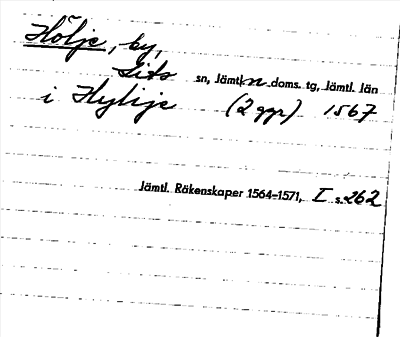 Hölje, by,
Lits sn, Jämtl. n doms. tg, Jämtl. län
i Hylije (2 ggr) 1567
Jämtl. Räkenskaper 1564-1571, I s. 262